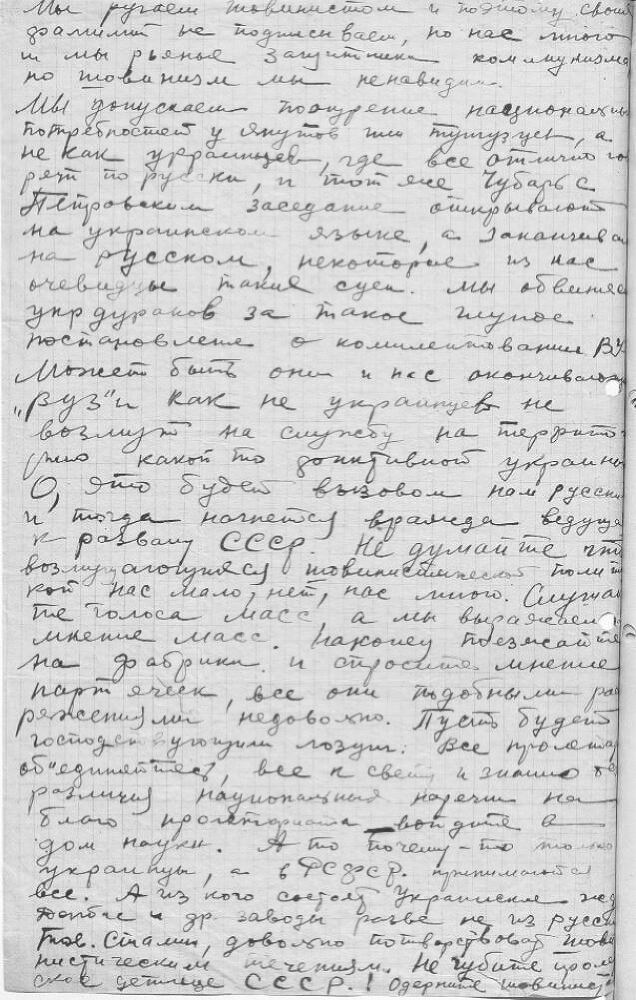 Мы ругаем шовинистом и поэтому свои
фамилии не подписываем, но нас много
и мы рьяные защитники коммунизма
но шовинизм мы ненавидим.
Мы допускаем поощрение национальн
потребностей у якутов или тунгузуев, а
не как украинцев, где все отлично го
рят по русски, и тот же Чубарь с
Петровским заседание открывают
на украинском языке, а заканчива
на русском, некоторые из нас
очевидцы такие суть. Мы обвиняе
укрдураков за такое глупое
постановление о комплектовании ВУ
Может быть они и нас окончивающ
"ВУЗ"и как не украинцев не
возмут на службу на террито
рию какой то фиктивной украины
О, это будет вызовом нам русски
и тогда начнется вражда ведуща
к развалу СССР. Не думайте что
возмущающихся шовинистической полит
кой нас мало, нет, нас много. Слушай
те голоса масс, а мы выражаем
мнение масс. Наконец поезжайте
на фабрики и спросите мнение
парт ячеек, все они подобными рас
ряжениями недовольно. Пусть будет
господствующим лозунг: Все пролетар
об"единяйтесь, все к свету и знанию бе
различия национальных наречий на
благо пролетариата войдите в
дом науки. А то почему-то только
украинцы, а в РСФСР. принимаются
все. А из кого состоят Украинские жд
Донбас и др заводы разве не из русск
Тов. Сталин, довольно потворствовать шови
нистическим течениям. Не губите проле
ское детище СССР.! Одерните шовинист